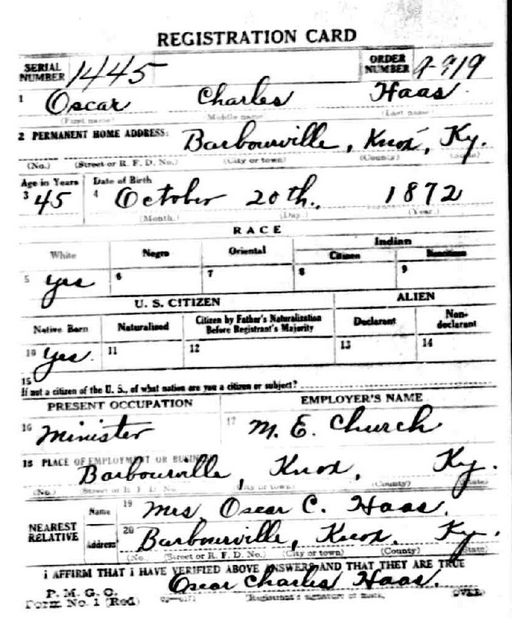 REGISTRATION CARD
SERIAL NUMBER 1445 ORDER NUMBER
1 Oscar Charles Haas
(First name) (Middle name) (Last name)
2 PERMANENT HOME ADDRESS: Barbourville, Knox, Ky.
(No.) (Street or R. F. D. No.) (City or town) (County) (State)
Age in Years Date of Birth
3 45 4 October 20th. 1872
(Month.) (Day.) (Year.)
RACE
White Negro Oriental Indian
Citizen Noncitizen
5 Yes 6 7 8 9
U. S. CITIZEN ALIEN
Native Born Naturalized Citizen by Father's Naturalization Before Registrant's Majority Declarant Non-declarant
10 Yes. 11 12 13 14
15
If not a citizen of the U. S., of what nation are you a citizen or subject?
PRESENT OCCUPATION EMPLOYER'S NAME
16 Minister 17 M. E. Church
18 PLACE OF EMPLOYMENT OR BUSINESS
Barbourville, Knox, Ky.
(No.) (Street or R. F. D. No.) (City or town) (County) (State)
NEAREST RELATIVE Name 19 Mrs Oscar C. Haas.
Address 20 Barbourville, Knox, Ky.
(No.) (Street or R. F. D. No.) (City or town) (County) (State)
I AFFIRM THAT I HAVE VERIFIED ABOVE ANSWERS AND THAT THEY ARE TRUE
Oscar Charles Haas.
P. M. G. O.
Form No. 1 (Red) (Registrant's signature or mark) (OVER)